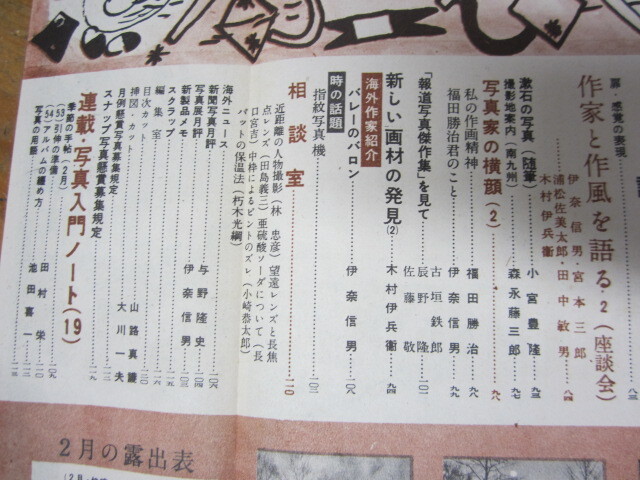 扉・感覚の表現
作家と作風を語る 2 (座談会)
伊奈信男・宮本三郎
浦松佐美太郎・田中敏男
木村伊兵衛
漱石の写真(随筆) 小宮豊隆
撮影地案内(南九州) 森永藤三郎 九七
写真家の横顔(2) 九八
私の作画精神 福田勝治 九八
福田勝治君のこと 伊奈信男 九九
「報道写真傑作集」を見て
古垣鉄郎
辰野隆
佐藤敬
新しい画材の発見(2) 木村伊兵衛 九四
海外作家紹介
バレーのバロン 伊奈信男 一〇八
時の話題
指紋写真機 一〇二
相談室 一一〇
近距離の人物撮影(林忠彦) 望遠レンズと長焦
点レンズ(田島義三) 亜硫酸ソーダについて(長
口宮吉) 中枠によるピントのズレ(小崎恭太郎)
バットの保温法(朽木光綱)
海外ニュース 一〇六
新聞写真月評 与野隆史 一〇四
写真展月評 伊奈信男
新製品メモ
スクラップ
編集室
目次カット 山路真護
挿図・カット 大川一夫
月例懸賞写真募集規定
スナップ写真懸賞募集規定
連載・写真入門ノート(19)
季節の手帖(2月)
(53)引伸の準備 田村栄
(54)アルバムの纏め方 池田喜一
写真の用語
2月の露出表